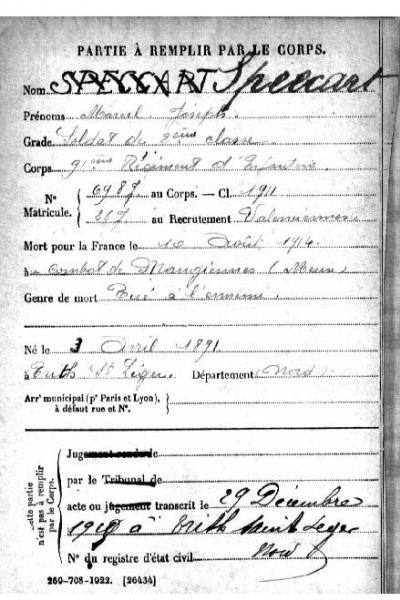 PARTIE À REMPLIR PAR LE CORPS.
Nom Speecart
Prénoms Marcel Joseph
Grade Soldat de 2ème classe
Corps 91ème Régiment d'Infanterie
N° Matricule. { 6987 au Corps. — Cl. 1911
267 au Recrutement Valenciennes
Mort pour la France le 10 Août 1914
au combat de Mangiennes (Meuse)
Genre de mort Tué à l'ennemi
Né le 3 Avril 1891
à Trith St Léger Département (Nord)
Arrᵗ municipal (pʳ Paris et Lyon), à défaut rue et N°.
Cette partie n'est pas à remplir par le Corps.
Jugement rendu le
par le Tribunal de
acte ou jugement transcrit le 29 Décembre
à Trith Saint Leger
N° du registre d'état civil Nord
269-708-1922. [26434]